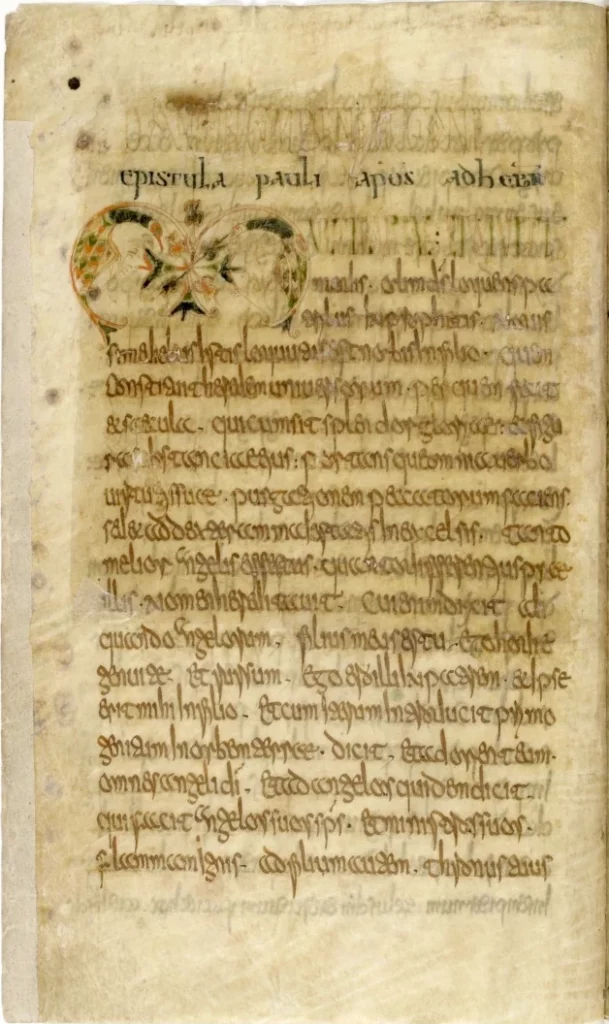 epistula pauli apos ad hebr
modis. olim ds loquens pa
tribus in prophetis. novis
diebus istis locutus est nobis in filio. quem
constituit heredem universorum. per quem fecit
et saecula. qui cum sit splendor gloriae. et figu
ra substanciae eius. portans quoque omnia verbo
virtutis suae. purgationem peccatorum faciens.
sedet ad dexteram maiestatis in excelsis. tanto
melior angelis effectus. quanto differentius prae
illis. nomen hereditavit. Cui enim dixit ali
quando angelorum. filius meus es tu. ego hodie
genui te. Et rursum. Ego ero illi in patrem. et ipse
erit mihi in filio. Et cum iterum introducit primo
genitum in orbem terrae. dicit. Et adorent eum.
omnes angeli di. Et ad angelos quidem dicit.
qui facit angelos suos sps. Et ministros suos.
flammam ignis. ad filium autem. thronus tuus